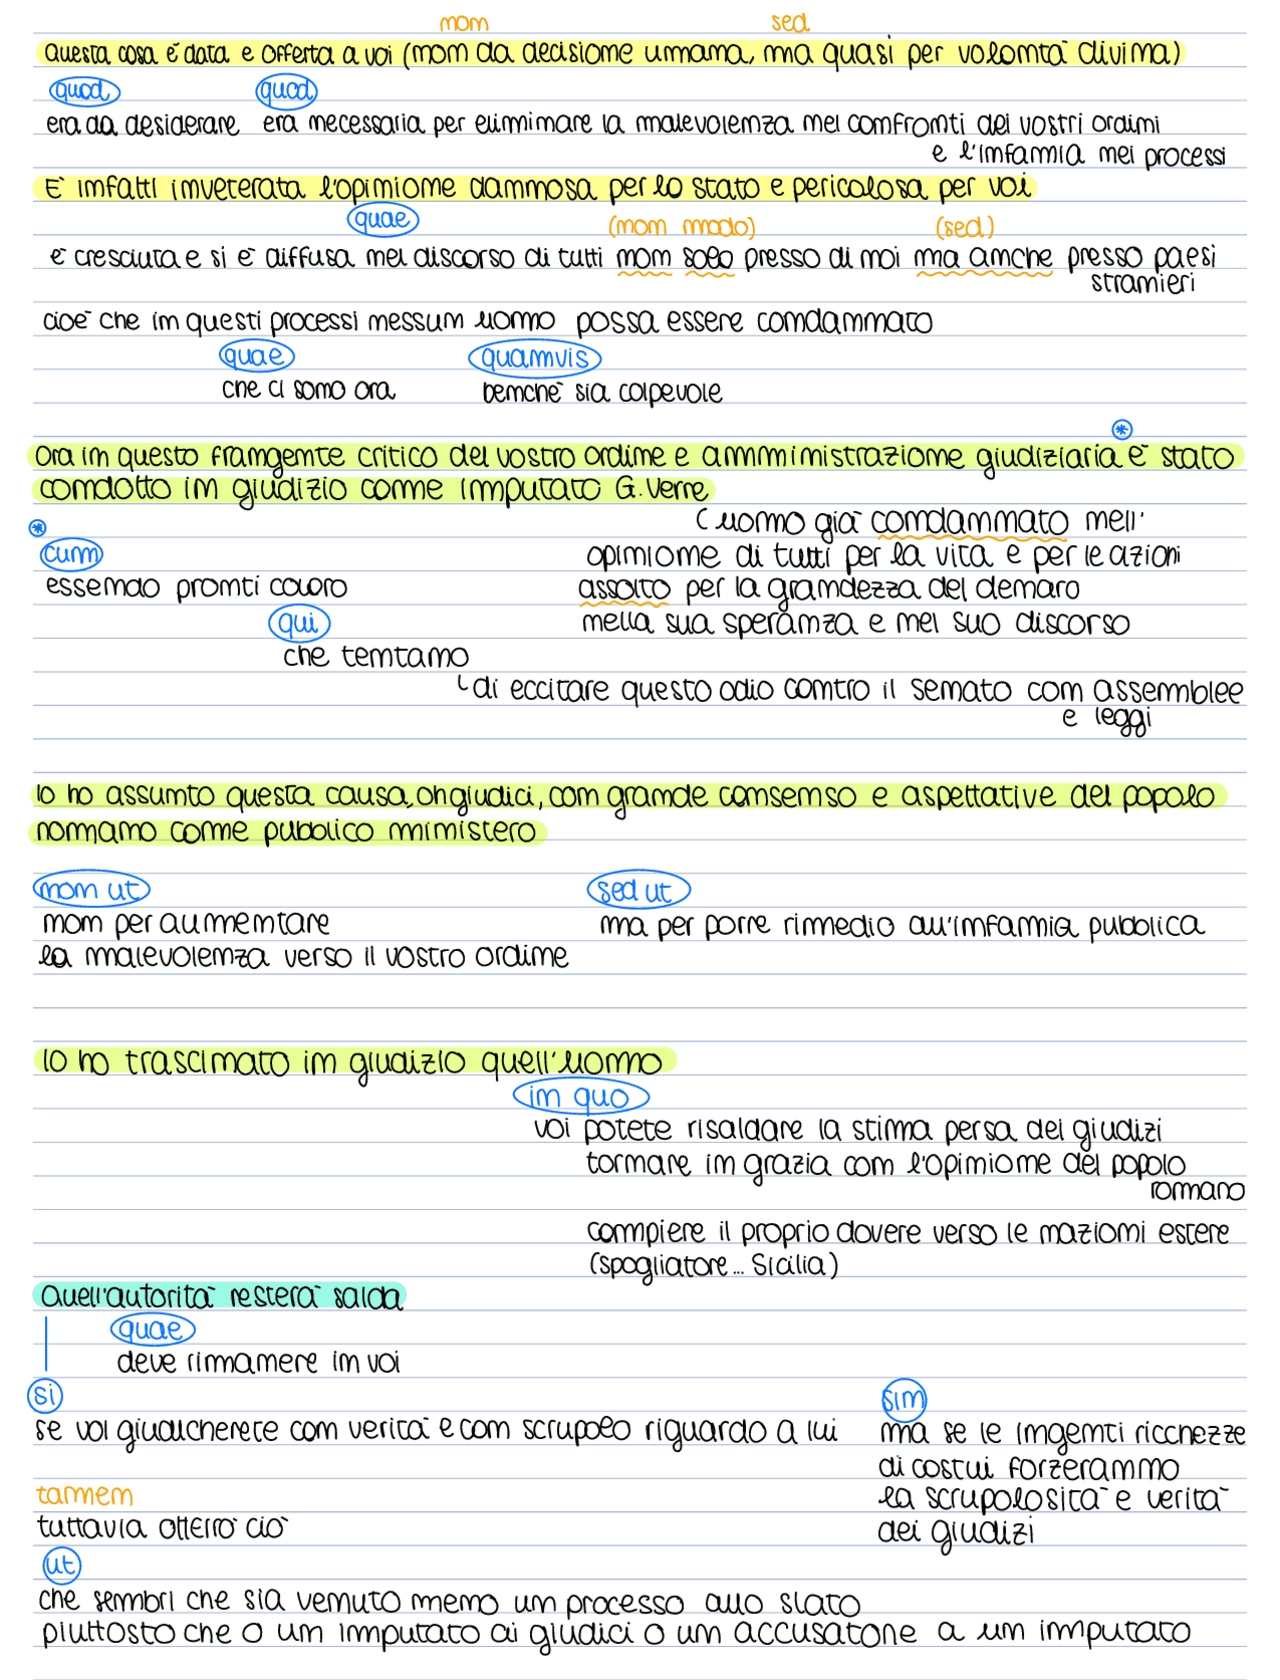 non sed
Questa cosa è data e offerta a voi (non da decisione umana, ma quasi per volontà divina)
quod quod
era da desiderare era necessaria per eliminare la malevolenza nei confronti dei vostri ordini
e l'infamia nei processi
È infatti inveterata l'opinione dannosa per lo stato e pericolosa per voi
quae (non modo) (sed)
è cresciuta e si è diffusa nel discorso di tutti non solo presso di noi ma anche presso paesi
stranieri
cioè che in questi processi nessun uomo possa essere condannato
quae quamvis
che ci sono ora benché sia colpevole
*
Ora in questo frangente critico del vostro ordine e amministrazione giudiziaria è stato
condotto in giudizio come imputato G. Verre
* (uomo già condannato nell'
cum opinione di tutti per la vita e per le azioni
essendo pronti coloro assolto per la grandezza del denaro
qui nella sua speranza e nel suo discorso
che tentano
di eccitare questo odio contro il senato con assemblee
e leggi
Io ho assunto questa causa, oh giudici, con grande consenso e aspettative del popolo
romano come pubblico ministero
non ut sed ut
non per aumentare ma per porre rimedio all'infamia pubblica
la malevolenza verso il vostro ordine
Io ho trascinato in giudizio quell'uomo
in quo
voi potete risaldare la stima persa dei giudizi
tornare in grazia con l'opinione del popolo
romano
compiere il proprio dovere verso le nazioni estere
(spogliatore... Sicilia)
Quell'autorità resterà salda
quae
deve rimanere in voi
si sin
se voi giudicherete con verità e con scrupolo riguardo a lui ma se le ingenti ricchezze
di costui forzeranno
tamen la scrupolosità e verità
tuttavia otterrò ciò dei giudizi
ut
che sembri che sia venuto meno un processo allo stato
piuttosto che o un imputato ai giudici o un accusatore a un imputato